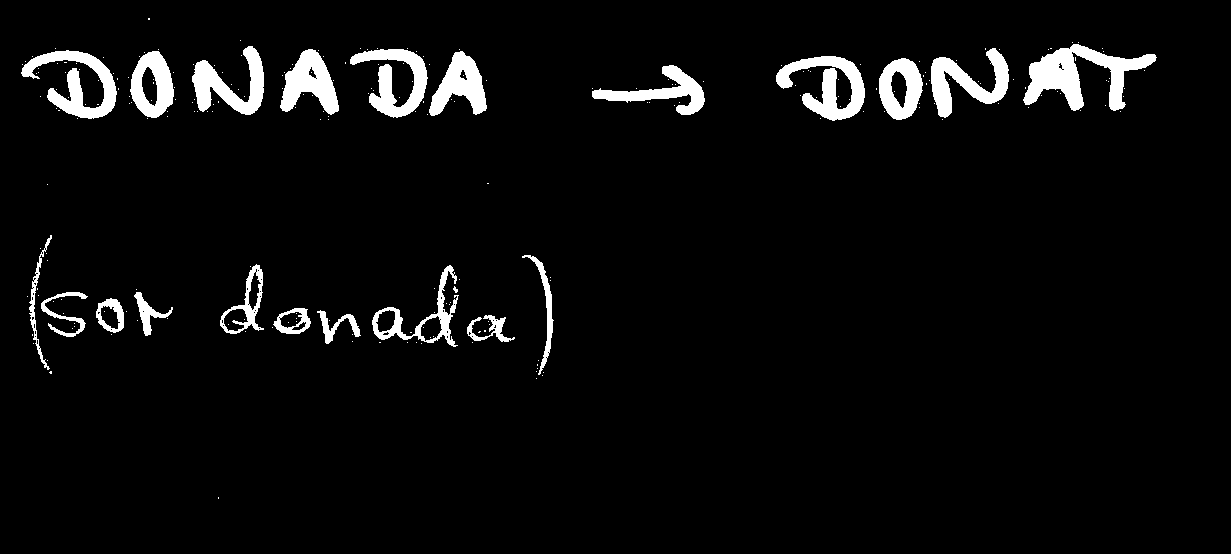 DONADA → DONAT
(sor donada)